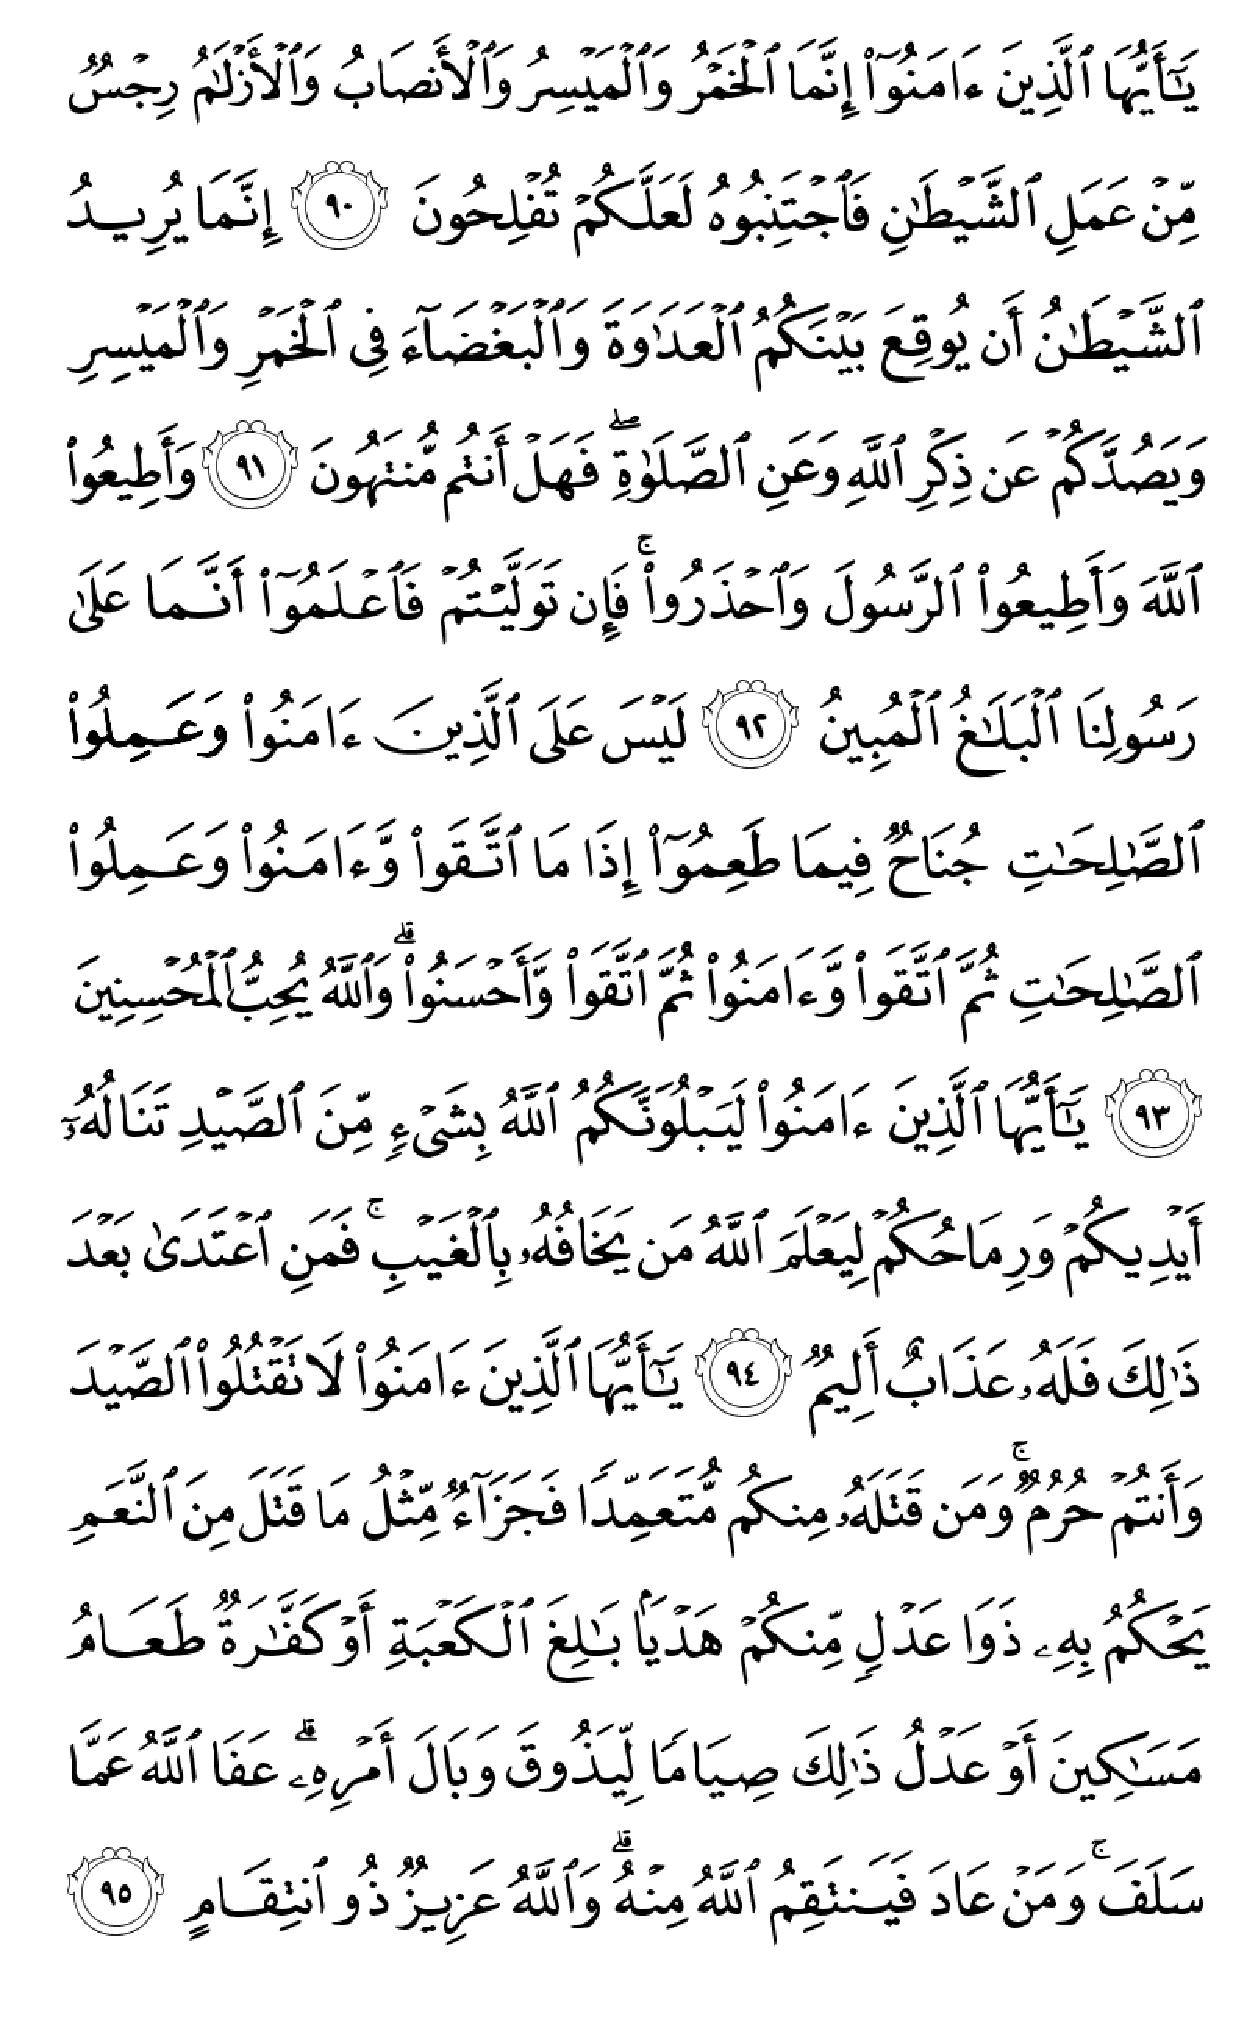 يَٰٓأَيُّهَا ٱلَّذِينَ ءَامَنُوٓا۟ إِنَّمَا ٱلْخَمْرُ وَٱلْمَيْسِرُ وَٱلْأَنصَابُ وَٱلْأَزْلَٰمُ رِجْسٌ
مِّنْ عَمَلِ ٱلشَّيْطَٰنِ فَٱجْتَنِبُوهُ لَعَلَّكُمْ تُفْلِحُونَ ٩٠ إِنَّمَا يُرِيدُ
ٱلشَّيْطَٰنُ أَن يُوقِعَ بَيْنَكُمُ ٱلْعَدَٰوَةَ وَٱلْبَغْضَآءَ فِى ٱلْخَمْرِ وَٱلْمَيْسِرِ
وَيَصُدَّكُمْ عَن ذِكْرِ ٱللَّهِ وَعَنِ ٱلصَّلَوٰةِ ۖ فَهَلْ أَنتُم مُّنتَهُونَ ٩١ وَأَطِيعُوا۟
ٱللَّهَ وَأَطِيعُوا۟ ٱلرَّسُولَ وَٱحْذَرُوا۟ ۚ فَإِن تَوَلَّيْتُمْ فَٱعْلَمُوٓا۟ أَنَّمَا عَلَىٰ
رَسُولِنَا ٱلْبَلَٰغُ ٱلْمُبِينُ ٩٢ لَيْسَ عَلَى ٱلَّذِينَ ءَامَنُوا۟ وَعَمِلُوا۟
ٱلصَّٰلِحَٰتِ جُنَاحٌ فِيمَا طَعِمُوٓا۟ إِذَا مَا ٱتَّقَوا۟ وَّءَامَنُوا۟ وَعَمِلُوا۟
ٱلصَّٰلِحَٰتِ ثُمَّ ٱتَّقَوا۟ وَّءَامَنُوا۟ ثُمَّ ٱتَّقَوا۟ وَّأَحْسَنُوا۟ ۗ وَٱللَّهُ يُحِبُّ ٱلْمُحْسِنِينَ
٩٣ يَٰٓأَيُّهَا ٱلَّذِينَ ءَامَنُوا۟ لَيَبْلُوَنَّكُمُ ٱللَّهُ بِشَىْءٍ مِّنَ ٱلصَّيْدِ تَنَالُهُۥٓ
أَيْدِيكُمْ وَرِمَاحُكُمْ لِيَعْلَمَ ٱللَّهُ مَن يَخَافُهُۥ بِٱلْغَيْبِ ۚ فَمَنِ ٱعْتَدَىٰ بَعْدَ
ذَٰلِكَ فَلَهُۥ عَذَابٌ أَلِيمٌ ٩٤ يَٰٓأَيُّهَا ٱلَّذِينَ ءَامَنُوا۟ لَا تَقْتُلُوا۟ ٱلصَّيْدَ
وَأَنتُمْ حُرُمٌ ۚ وَمَن قَتَلَهُۥ مِنكُم مُّتَعَمِّدًا فَجَزَآءٌ مِّثْلُ مَا قَتَلَ مِنَ ٱلنَّعَمِ
يَحْكُمُ بِهِۦ ذَوَا عَدْلٍ مِّنكُمْ هَدْيًۢا بَٰلِغَ ٱلْكَعْبَةِ أَوْ كَفَّٰرَةٌ طَعَامُ
مَسَٰكِينَ أَوْ عَدْلُ ذَٰلِكَ صِيَامًا لِّيَذُوقَ وَبَالَ أَمْرِهِۦ ۗ عَفَا ٱللَّهُ عَمَّا
سَلَفَ ۚ وَمَنْ عَادَ فَيَنتَقِمُ ٱللَّهُ مِنْهُ ۗ وَٱللَّهُ عَزِيزٌ ذُو ٱنتِقَامٍ ٩٥